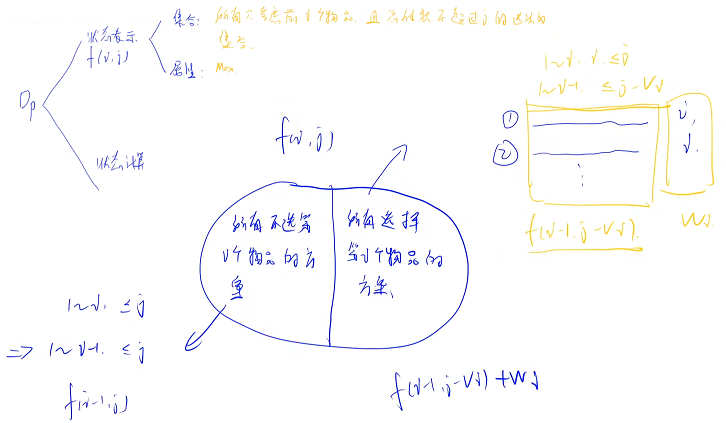 集合: 所有只考虑前i个物品, 且总体积不超过j的选法的
集合.
状态表示
f(i,j)
属性: Max.
Dp
状态计算
1~i. ≤j
1~i-1. ≤j-Vi
①
②
⋮
i,
i.
f(i-1,j-Vi).
Wi
f(i,j)
所有不选第
i个物品的方
案
所有选择
第i个物品的
方案
1~i. ≤j
=> 1~i-1. ≤j
f(i-1,j)
f(i-1,j-Vi)+Wi